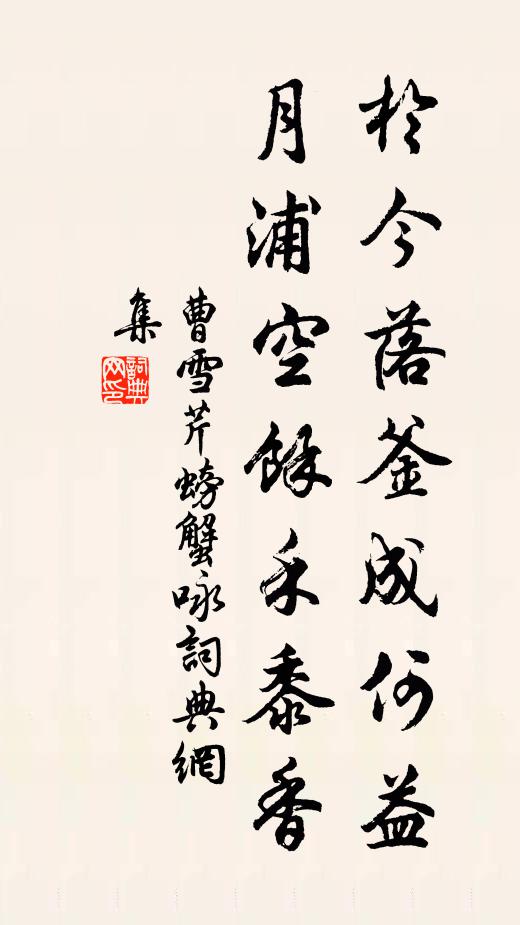 於今落釜成何益
月浦空餘禾黍香
曹雪芹螃蟹咏詞典網
集
詞典
网印